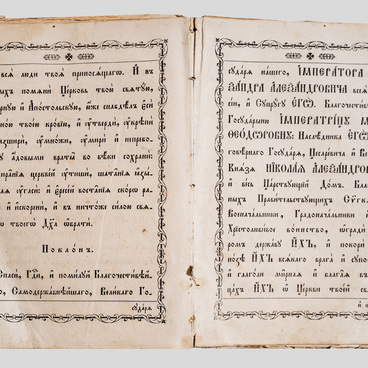 вся люди твоѧ приносѧщаго. Й въ
ыхъ помѧни Церковь твою свѧтую,
рную и Апостольскую, юже снабдѣлъ есѝ
ною твоею кровїю, и утверди, укрѣпи
ашири, умножи, умири и непребо
у адовыми враты во вѣки сохрани:
иранїѧ церквей утиши, шатанїѧ ꙗзы
аѧ угаси: и ересей востанїѧ скорѡ ра
й и искорени, и въ ничтоже силою свѧ
ѡ твоегѡ Дха ѡбрати.
Поклонъ.
Спаси, Гди, и помилуй Благочестивѣй
о, Самодержавнѣйшаго, Великаго Го
сударѧ
сударѧ нашего, ІМПЕРАТОРА
ѮАНДРА АЛЕѮАНДРОВИЧА всеѧ
сїи, и Супругу ЕГѠ, Благочести
Государыню ІМПЕРАТРИЦУ М
ѲЕОДѠРОВНУ: Наслѣдника ЕГѠ,
говѣрнаго Государѧ, Цесаревича и Ве
Кнѧзѧ НИКОЛАѦ АЛЕѮАНДРОВ
и весь Царствующїй Домъ. Благо
ыхъ Правительствующихъ Сѵгк
Военачальники, Градоначальники
Христолюбивое воинство, огради
ромъ державу ИХЪ, и покори
нозѣ ИХЪ всѧкаго врага и супо
и глаголи мирнаѧ и благаѧ въ
цахъ ИХЪ ѡ Церкви твоей св